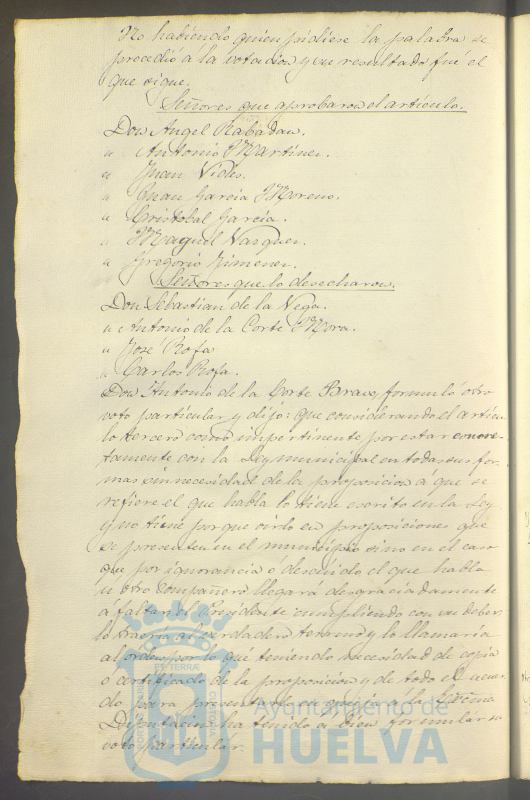 No habiendo quien pidiese la palabra se
procedió á la votacion y su resultado fué el
que sigue.
Señores que aprobaron el artículo.
Don Angel Rabadan.
" Antonio Martinez.
" Juan Vides.
" Juan Garcia Moreno.
" Cristobal Garcia.
" Manuel Vasquez.
" Gregorio Jimenez.
Señores que lo desecharon.
Don Sebastian de la Vega.
" Antonio de la Corte Mora.
" José Rofa
" Carlos Rofa.
Don Antonio de la Corte Bravo, formuló otro
voto particular y dijo: que considerando el articu
lo tercero como impertinente por estar
tamente con la Ley municipal en todas sus for
mas sin necesidad de la proposicion á que se
refiere el que habla lo tiene escrito en la Ley
y no tiene porque oirlo en proposiciones que
se presenten en el municipio sino en el caso
que por ignorancia o descuido el que habla
u otro compañero llegara desgraciadamente
a faltar el Presidente cumpliendo con su deber
lo traeria al verdadero terreno y lo llamaria
al orden por lo que teniendo necesidad de copia
o certificado de la proposicion y de todo el acuer
do para presentarlo a la
Diputacion ha tenido á bien formular su
voto particular.
Ayuntamiento de
HUELVA